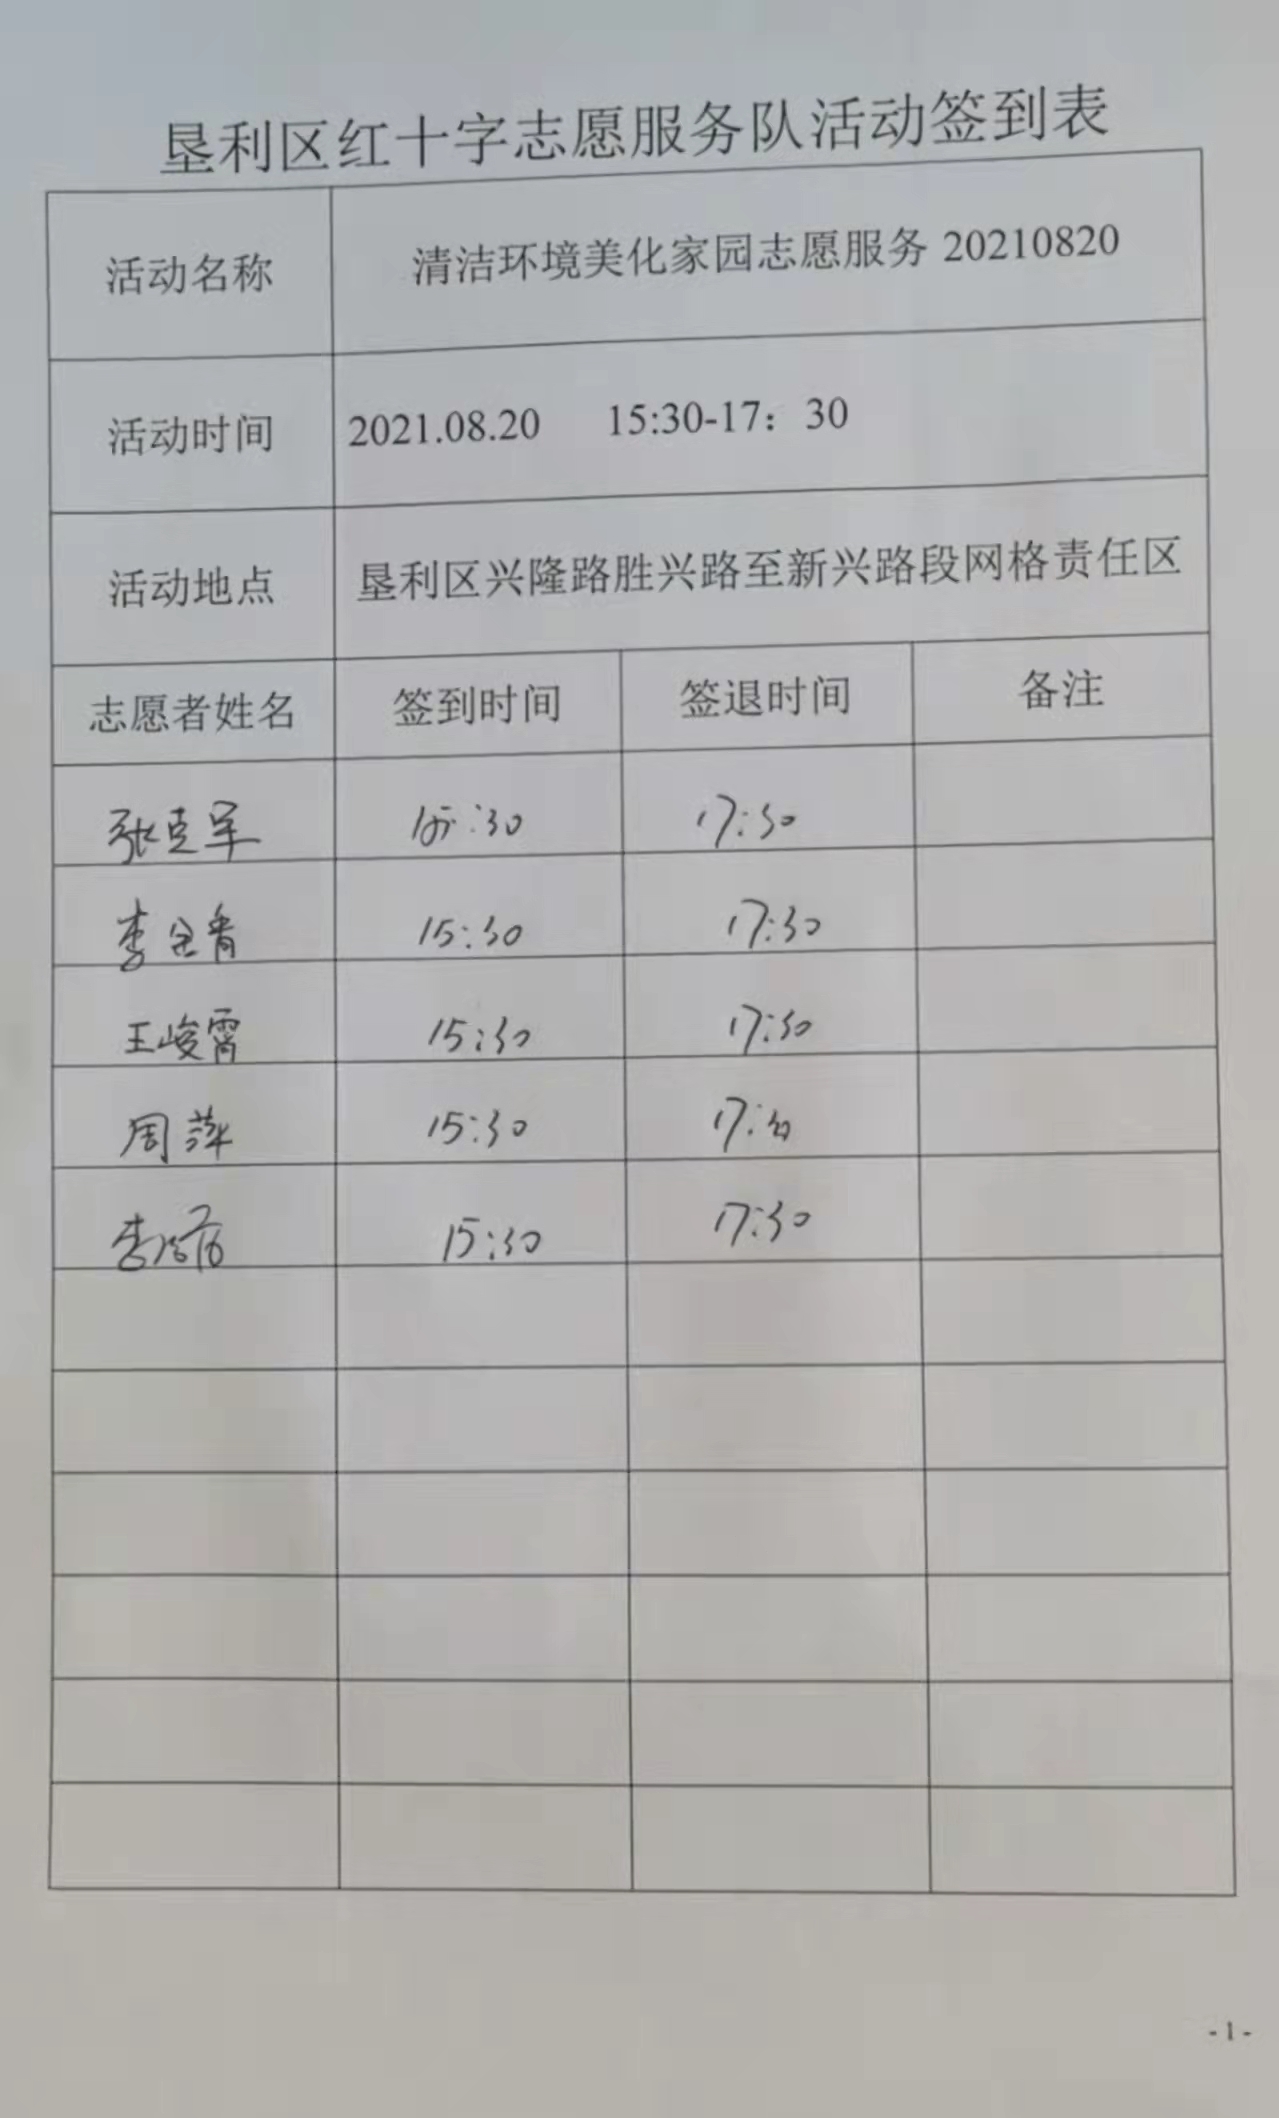 垦利区红十字志愿服务队活动签到表
活动名称 清洁环境美化家园志愿服务 20210820
活动时间 2021.08.20 15:30-17：30
活动地点 垦利区兴隆路胜兴路至新兴路段网格责任区
志愿者姓名 签到时间 签退时间 备注
张克军 15:30 17:30
李全青 15:30 17:30
王峻霄 15:30 17:30
周萍 15:30 17:30
李 15:30 17:30
- 1 -